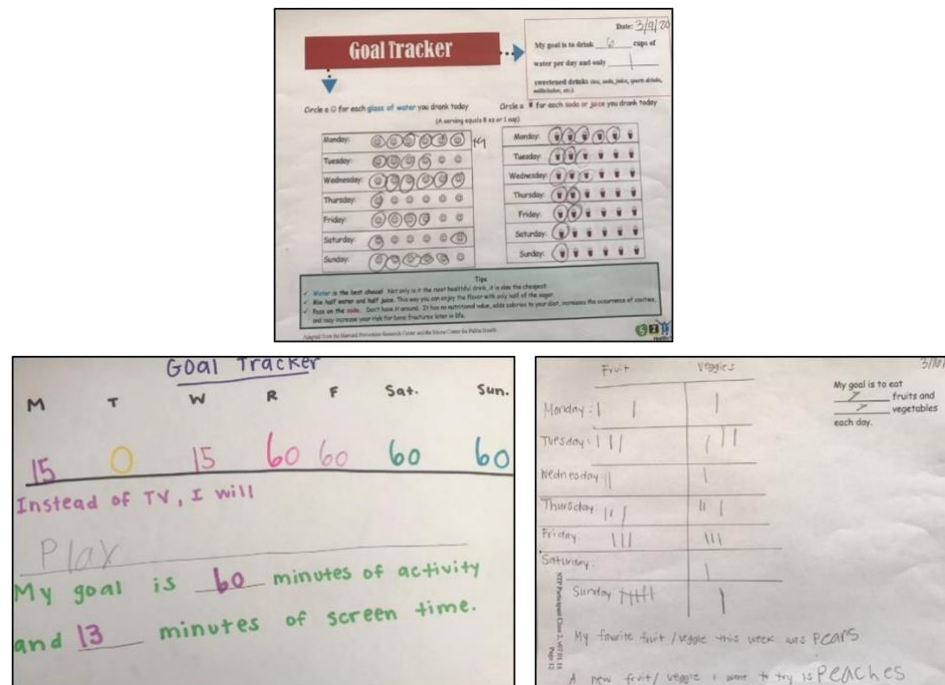 Date: 3/9/20
Goal Tracker
My goal is to drink 6 cups of
water per day and only 1
sweetened drinks (tea, soda, juice, sports drinks,
milkshakes, etc.).
Circle a ☺ for each glass of water you drank today
Circle a for each soda or juice you drank today
(A serving equals 8 oz or 1 cup)
Monday:
Tuesday:
Wednesday:
Thursday:
Friday:
Saturday:
Sunday:
Monday:
Tuesday:
Wednesday:
Thursday:
Friday:
Saturday:
Sunday:
Tips
✓ Water is the best choice! Not only is it the most healthful drink, it is also the cheapest.
✓ Mix half water and half juice. This way you can enjoy the flavor with only half of the sugar.
✓ Pass on the soda. Don't have it around. It has no nutritional value, adds calories to your diet, increases the occurrence of cavities,
and may increase your risk for bone fractures later in life.
Adapted from the Harvard Prevention Research Center and the Maine Center for Public Health
Goal Tracker
M T W R F Sat. Sun.
15 0 15 60 60 60 60
Instead of TV, I will
Play
My goal is 60 minutes of activity
and 13 minutes of screen time.
Fruit Veggies
My goal is to eat
fruits and
vegetables
each day.
Monday:
Tuesday:
Wednesday:
Thursday:
Friday
Saturday:
Sunday
My favorite fruit/veggie this week was Pears
A new fruit/veggie I want to try is Peaches